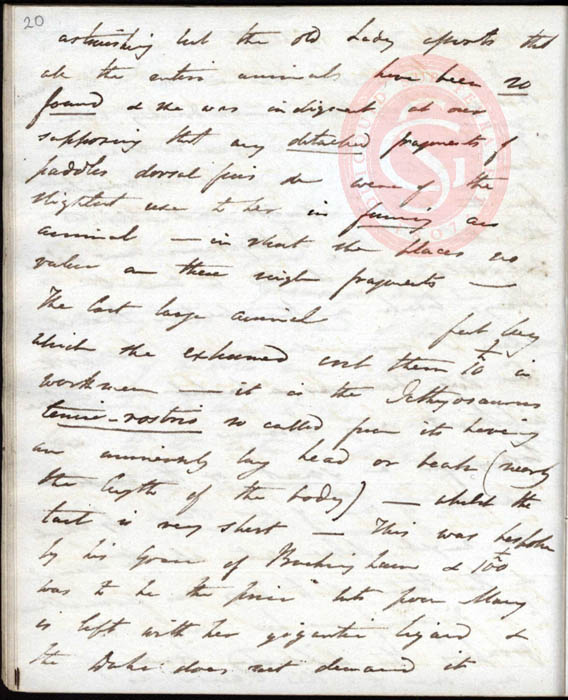 20
astonishing but the old Lady asserts that
all the entire animals have been so
found & she was indignant at our
supposing that any detached fragments of
paddles dorsal fins &c were of the
slightest use to her in joining an
animal — in short she places no
value on these single fragments —
The last large animal feet long
which she exhumed cost them £10 in
workmen — it is the Icthyosaurus
tenui-rostris so called from its having
an immensely long head or beak (nearly
the length of the body) — whilst the
tail is very short — This was bespoke
by his Grace of Buckingham & £100
was to be the price but poor Mary
is left with her gigantic lizard &
the Duke does not demand it